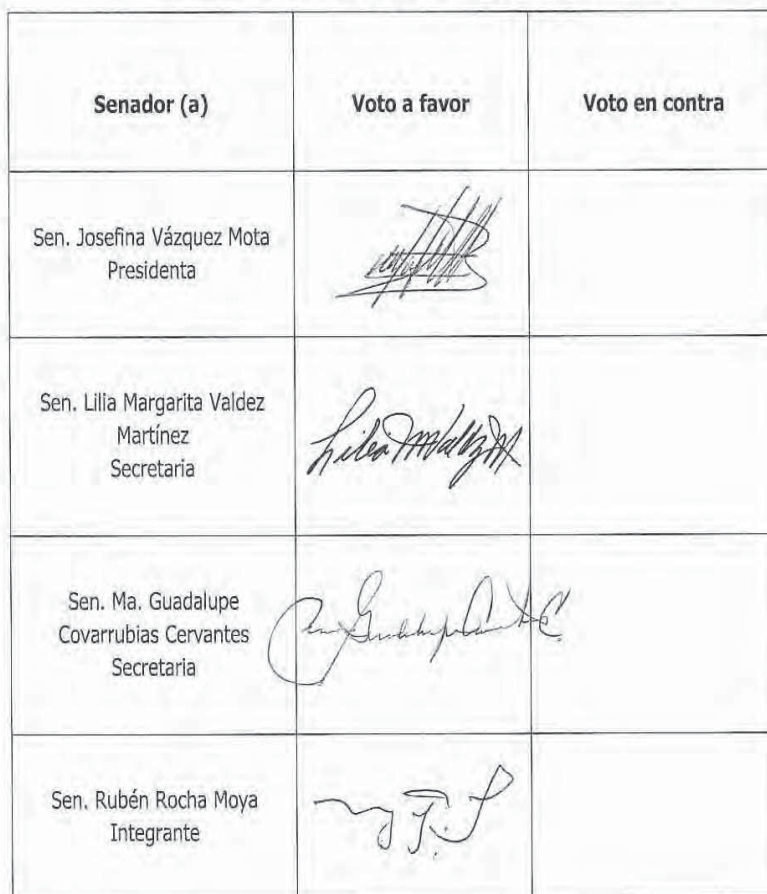 Senador (a) Voto a favor Voto en contra
Sen. Josefina Vázquez Mota
Presidenta
Sen. Lilia Margarita Valdez
Martínez
Secretaria
Sen. Ma. Guadalupe
Covarrubias Cervantes
Secretaria
Sen. Rubén Rocha Moya
Integrante